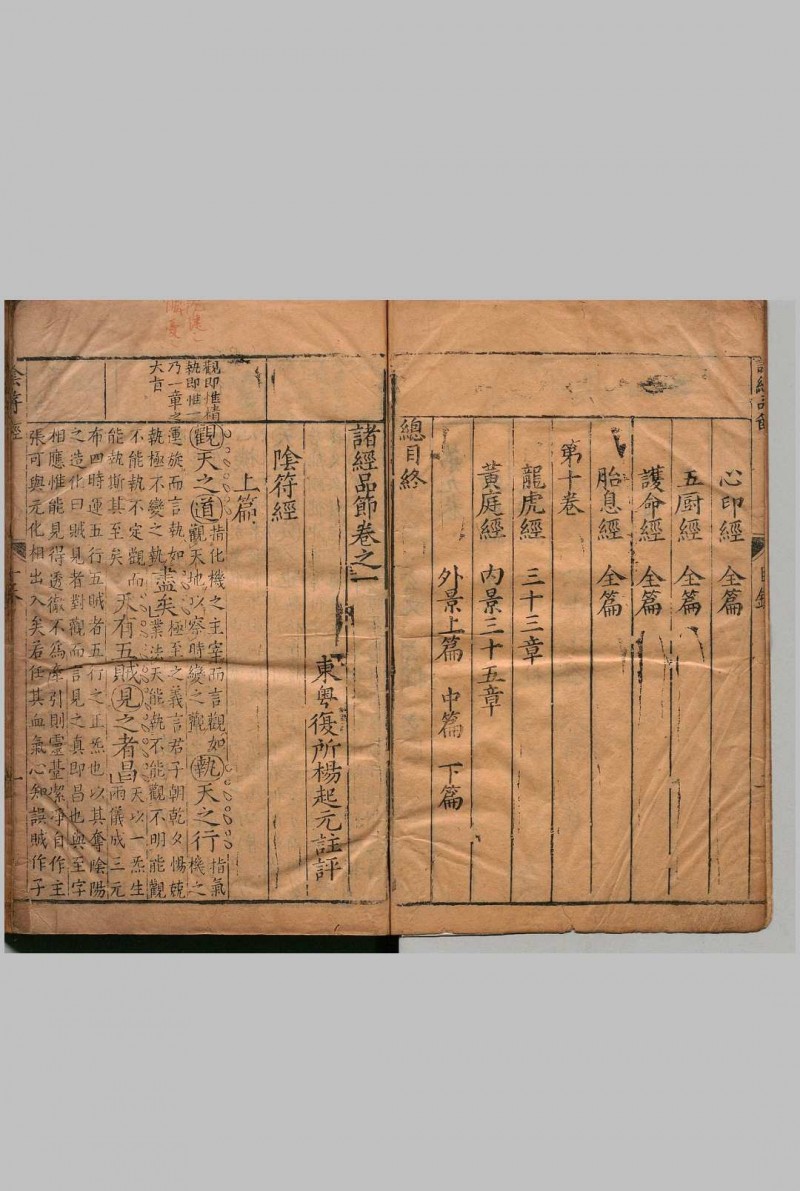 心印經 全篇
五厨經 全篇
護命經 全篇
胎息經 全篇
第十卷
龍虎經 三十三章
黃庭經 內景三十五章
外景上篇 中篇 下篇
總目終
諸經品節卷之一
東粤復所楊起元註評
陰符經
上篇
觀即惟精
執即惟一
乃一章之
大旨
觀天之道
指化機之主宰而言觀如
觀天地以察時變之觀
執天之行
指氣機之
運旋而言執如
執極不變之執
盡矣
極至之義言君子朝乾夕惕兢
業法天能執不能觀不明能觀
不能執不定觀而
能執斯其至矣
天有五賊見之者昌
天以一炁生
兩儀成三元
布四時運五行五賊者五行之正炁也以其奪陰陽
之造化曰賊見者對觀而言見之真即昌也與至字
相應惟能見得透徹不爲牽引則靈䑓潔凈自作主
張可與元化相出入矣若任其血氣心知誤賊作子
陰符經